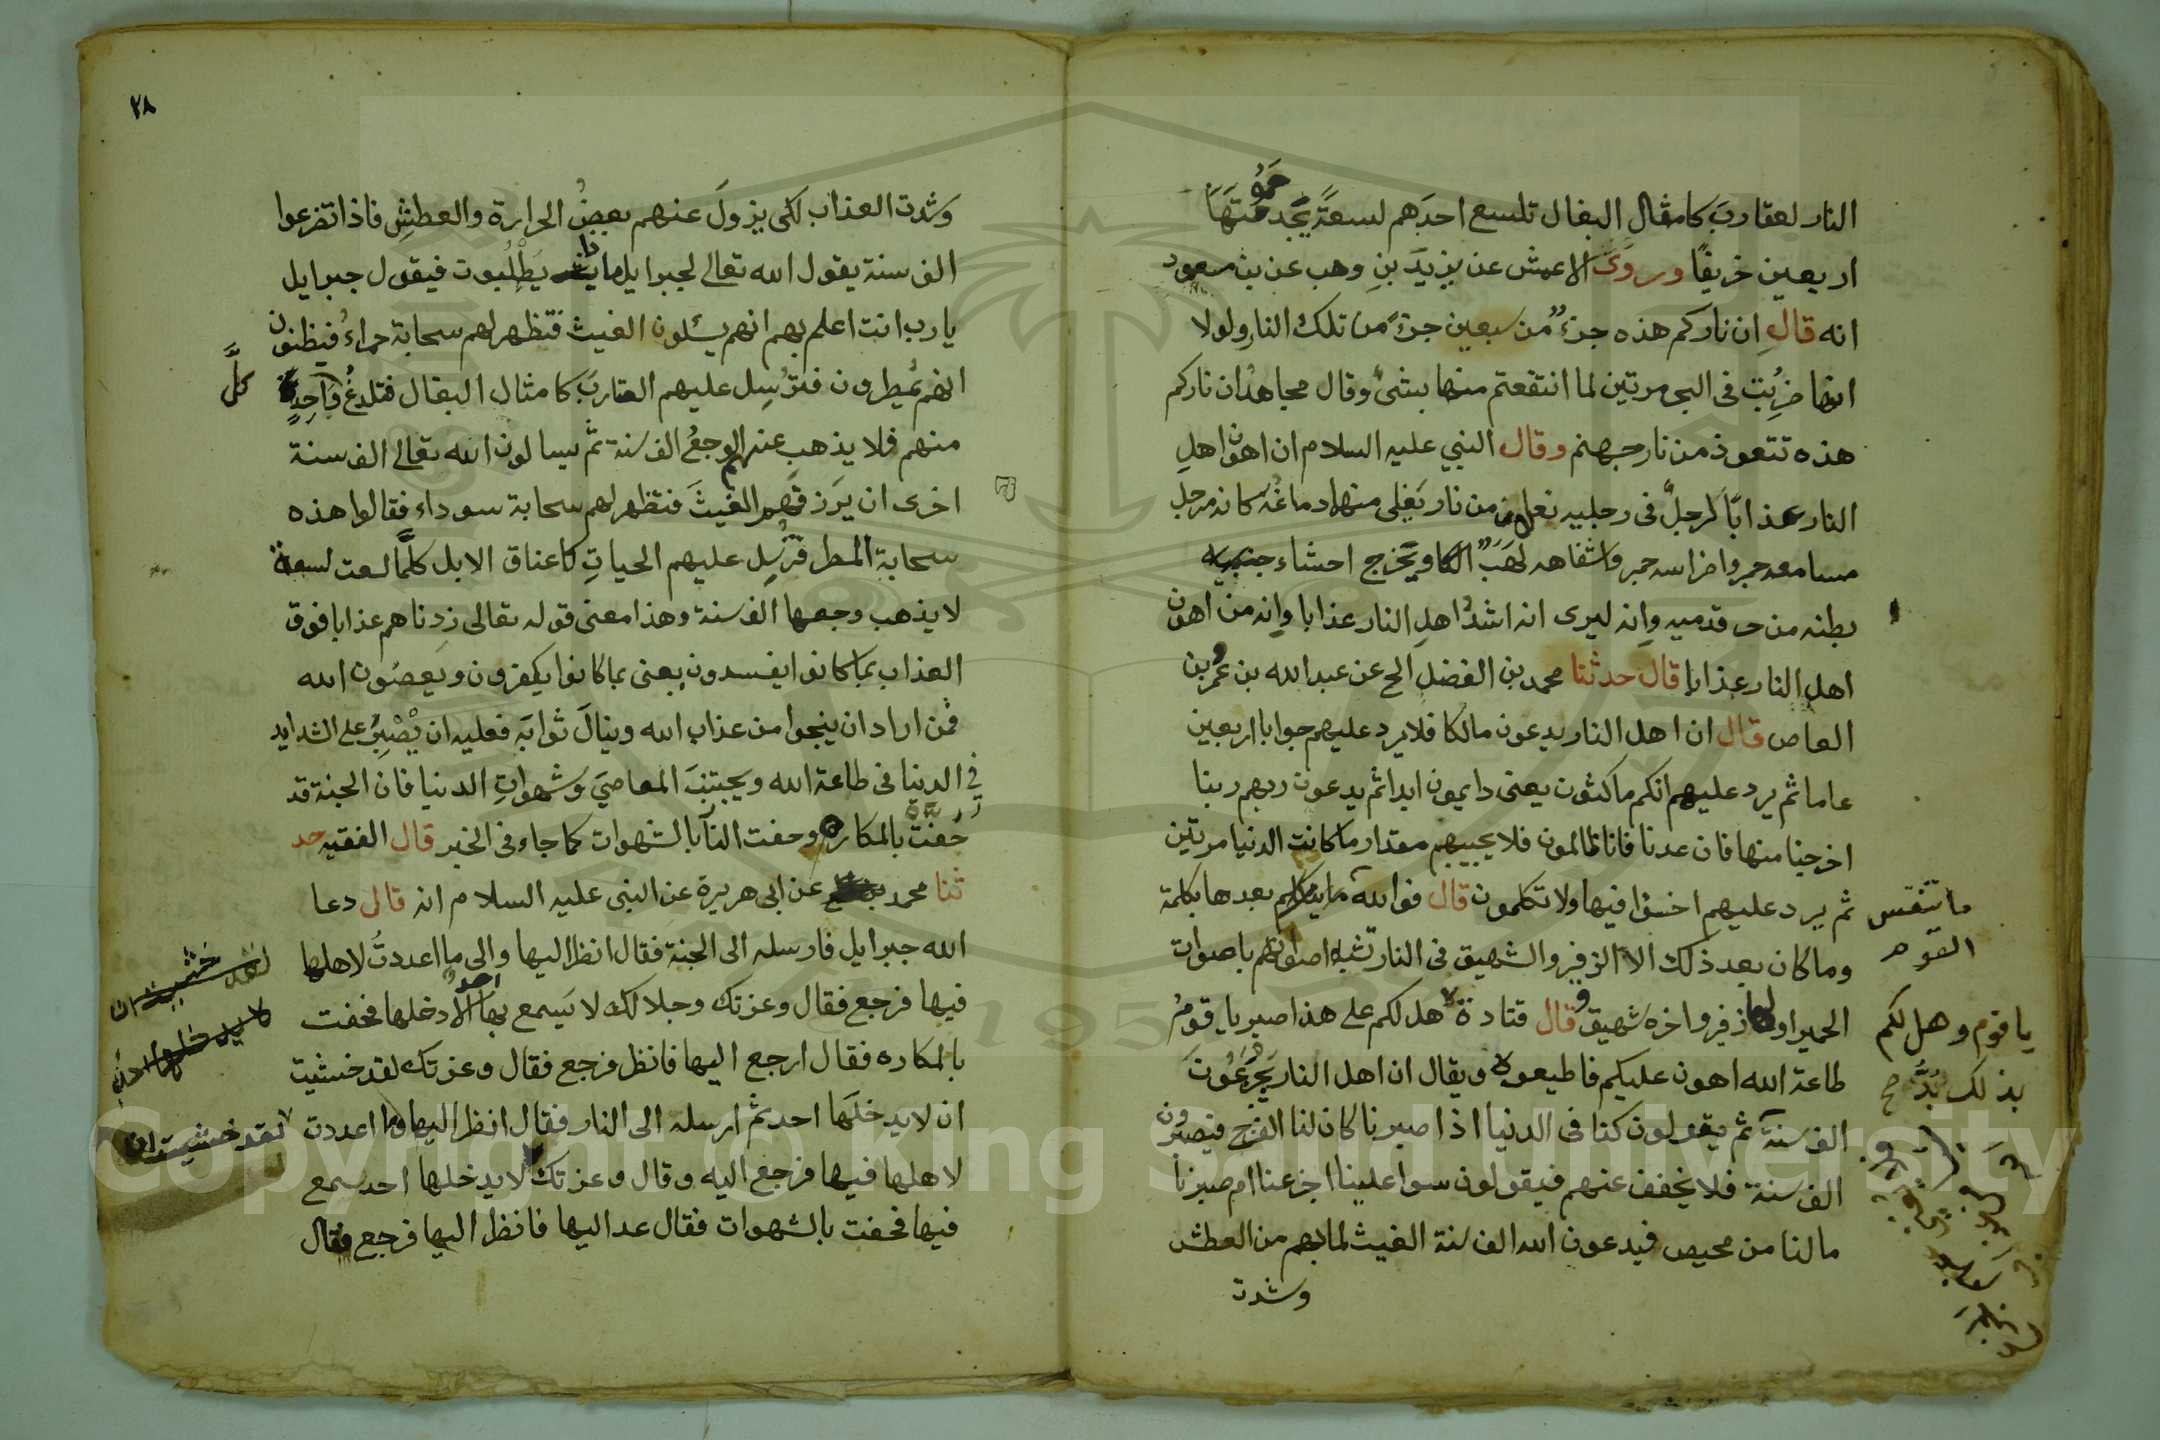 النار لعقارب كامثال البغال تلسع احدهم لسعة يجد حمتها
اربعين خريفا وروى الاعمش عن يزيد بن وهب عن بن مسعود
انه قال ان ناركم هذه جزء من سبعين جزء من تلك النار ولولا
انها ضربت في البحر مرتين لما انتفعتم منها بشئ وقال مجاهد ان ناركم
هذه تتعوذ من نار جهنم وقال النبي عليه السلام ان اهون اهل
النار عذابا لرجل في رجليه نعلان من نار يغلى منها دماغه كانه مرجل
مسامعه جمر واضراسه جمر واشفاهه لهب النار ويخرج احشاء جنبيه
بطنه من قدميه وانه ليرى انه اشد اهل النار عذابا وانه من اهون
اهل النار عذابا قال حدثنا محمد بن الفضل الخ عن عبد الله بن عمر بن
العاص قال ان اهل النار يدعون مالكا فلا يرد عليهم جوابا اربعين
عاما ثم يرد عليهم انكم ماكثون يعنى دايمون ابدا ثم يدعون ربهم ربنا
اخرجنا منها فان عدنا فانا ظالمون فلا يجيبهم مقدار ما كانت الدنيا مرتين
ثم يرد عليهم اخسؤا فيها ولا تكلمون قال فوالله ما يتكلم بعدها بكلمة
وما كان بعد ذلك الا الزفير والشهيق في النار تشبه اصواتهم باصوات
الحمير اولها زفير واخره شهيق وقال قتادة هل لكم على هذا صبر يا قوم
طاعة الله اهون عليكم فاطيعوه ويقال ان اهل النار يجزعون
الف سنة ثم يقولون كنا في الدنيا اذا صبرنا كان لنا الفرج فيصبرون
الف سنة فلا يخفف عنهم فيقولون سوا علينا اجزعنا ام صبرنا
مالنا من محيص فيدعون الله الف سنة الغيث لما بهم من العطش
وشدت
ما تنفس
القوم
يا قوم وهل لكم
بذلك بد صح
٢٨
وشدت العذاب لكى يزول عنهم بعض الحرارة والعطش فاذا تضرعوا
الف سنة يقول الله تعالى لجبرايل ماذا يطلبون فيقول جبرايل
يارب انت اعلم بهم انهم يسئلون الغيث فتظهر لهم سحابة حمراء فيظنون
انهم يمطرون فترسل عليهم العقارب كامثال البغال فتلدغ واحد
كل
منهم فلا يذهب عنهم الوجع الف سنة ثم يسالون الله تعالى الف سنة
اخرى ان يرزقهم الغيث فتظهر لهم سحابة سوداء فقالوا هذه
سحابة المطر فترسل عليهم الحيات كاعناق الابل كلما لسعت لسعة
لا يذهب وجعها الف سنة وهذا معنى قوله تعالى زدناهم عذابا فوق
العذاب بما كانوا يفسدون يعنى بما كانوا يكفرون ويعصون الله
فمن اراد ان ينجوا من عذاب الله وينال ثوابه فعليه ان يصبر على الشدايد
في الدنيا في طاعة الله ويجتنب المعاصي وشهوات الدنيا فان الجنة قد
حفت بالمكاره وحفت النار بالشهوات كما جاء في الخبر قال الفقيه حد
ثنا محمد بن عن ابى هريرة عن النبى عليه السلام انه قال دعا
الله جبرايل فارسله الى الجنة فقال انظر اليها والى ما اعددت لاهلها
فيها فرجع فقال وعزتك وجلالك لا يسمع بها احد الا دخلها فحفت
بالمكاره فقال ارجع اليها فانظر فرجع فقال وعزتك لقد خشيت
ان لا يدخلها احد ثم ارسله الى النار فقال انظر اليها وما اعددت
لقد خشيت ان
لاهلها فيها فرجع اليه وقال وعزتك لا يدخلها احد سمع
فيها فحفت بالشهوات فقال عد اليها فانظر اليها فرجع فقال
Copyright © King Saud University
1957